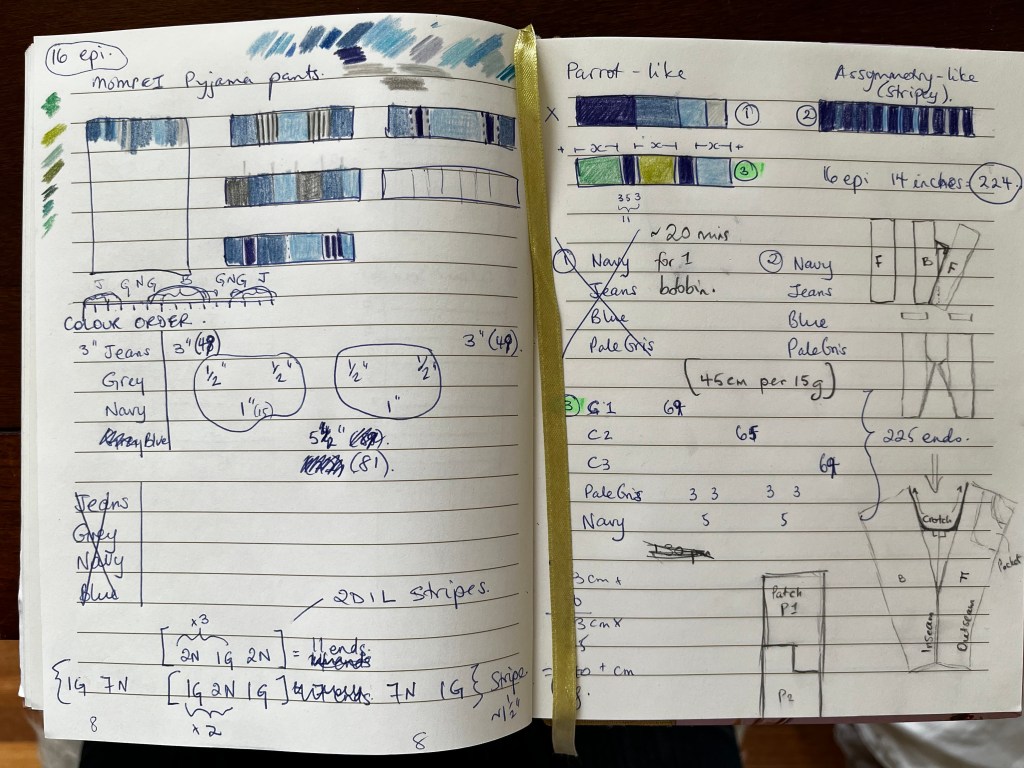 16 epi.
MOMPEI Pyjama pants.
J G NG B GNG J
COLOUR ORDER.
3" Jeans 3" (48) 3" (48).
Grey 1/2" 1/2" 1/2" 1/2"
Navy 1" (15) 1"
Blue 5 1/2"
(81).
Jeans
Grey
Navy
Blue
2D1L stripes.
x3
[2N 1G 2N] = 11 ends.
{1G 7N [1G 2N 1G] 7N 1G} Stripe
x 2
~1 1/2"
8
8
Parrot-like
Assymmetry-like
(stripey).
X
1
2
+ ⊢x⊣ ⊢x⊣ ⊢x⊣ +
3
3 5 3
11
16 epi 14 inches = 224.
~ 20 mins
for 1
bobbin.
1 Navy
Jeans
Blue
Pale Gris
2 Navy
Jeans
Blue
Pale Gris
F B F
[45cm per 15g]
3 C1 69
C2 65
C3 69
Pale Gris 3 3 3 3
Navy 5 5
225 ends.
Crotch
Pocket
B F
Inseam
Outseam
3 cm +
3 cm x
+ cm
Patch
P1
P2